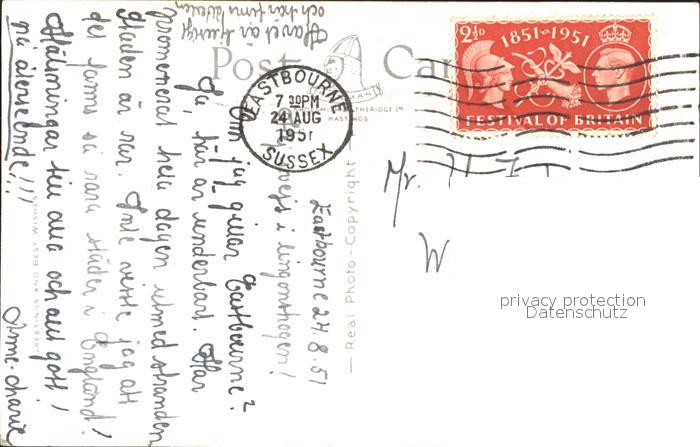 Post Ca
MAN
HASTINGS
EASTBOURNE
7 30PM
24 AUG
1951
SUSSEX
2½D
1851-1951
FESTIVAL OF BRITAIN
Mr. H
W
privacy protection
Datenschutz
— Real Photo - Copyright —
GREETINGS AND BEST WISHES
Eastbourne 24.8.51
i lingonskogen!
Om jag gillar Eastbourne?
Ja, här är underbart. Har
promenerat hela dagen utmed stranden
Staden är rar. Inte visste jag att
det fanns så rara städer i England!
Hälsningar till alla och allt gott!
på återseende!!!
Anne-Charie
Havet är ljuvligt
och här finns